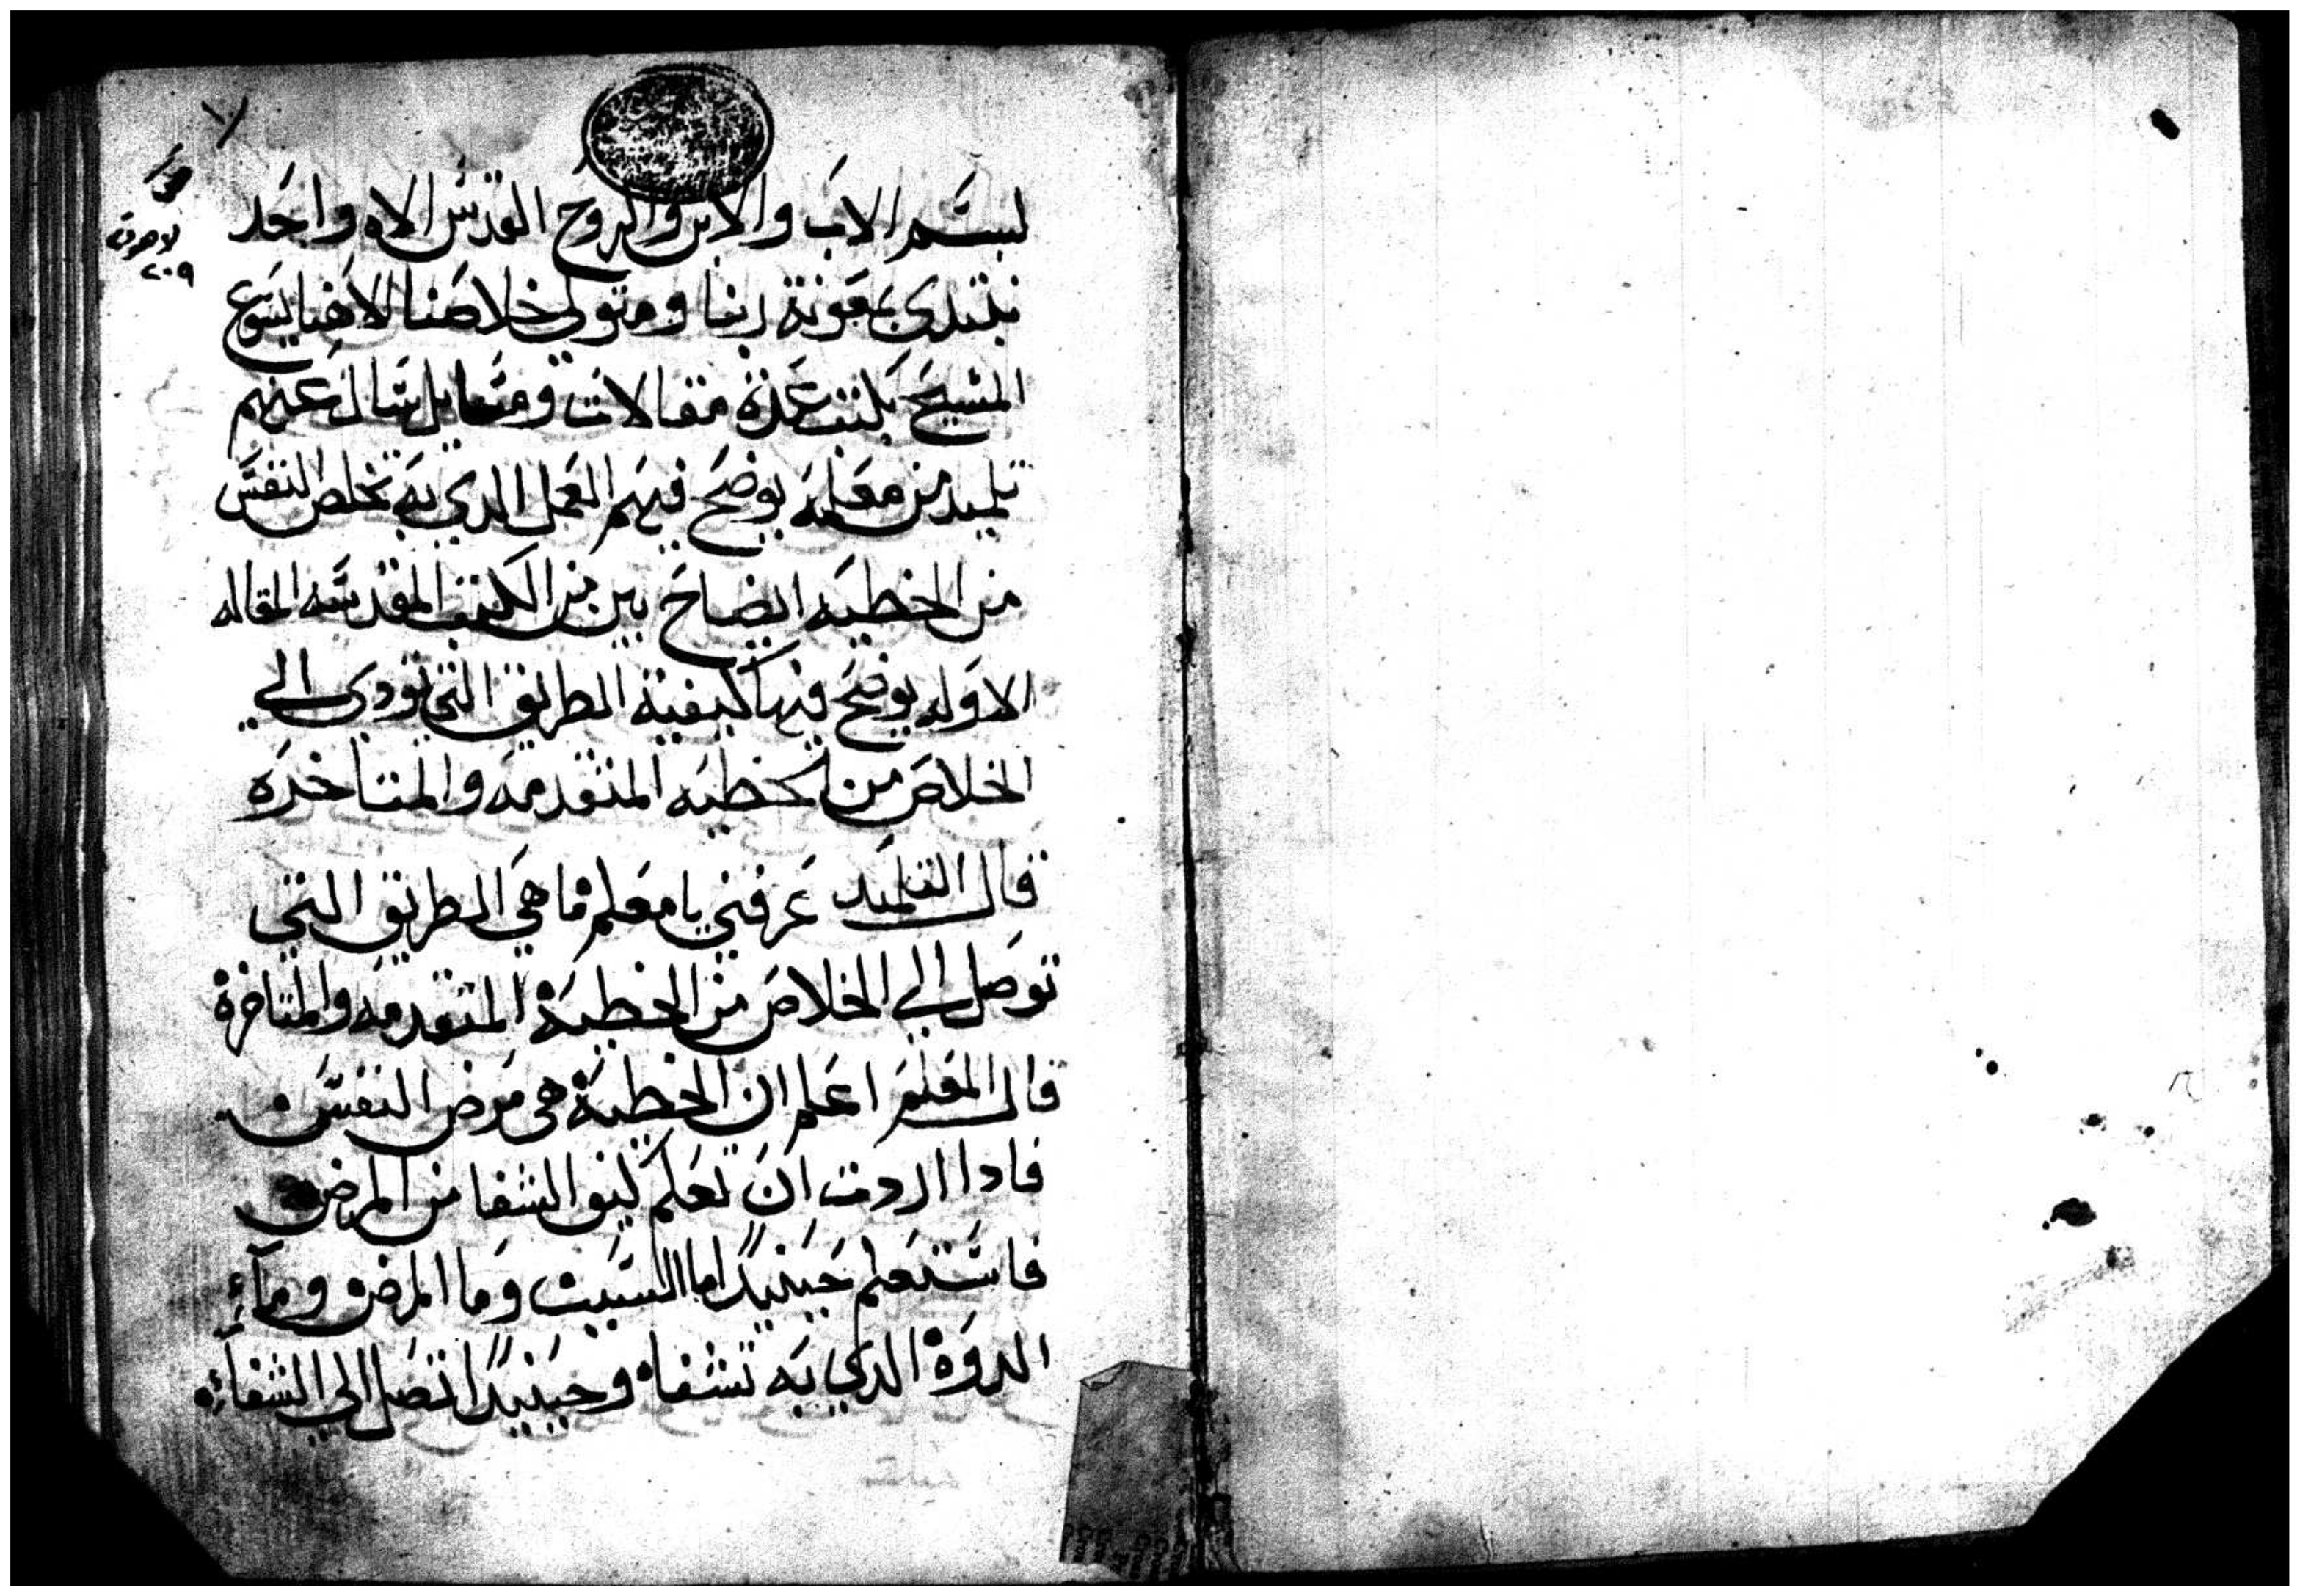 لاهوت
٢٠٩
بسم الاب والابن والروح القدس الاه واحد
نبتدي بمعونة ربنا ومتولي خلاصنا الاهنا يسوع
المسيح بكتب عدة مقالات ومسايل سال عنهم
تلميد من معلمه يوضح فيهم العمل الدي به تخلص النفس
من الخطيه ايضاح بين من الكتب المقدسه المقاله
الاوله يوضح فيها كيفية الطريق التي تودي الي
الخلاص من الخطيه المتقدمه والمتاخره
قال التلميد عرفني يا معلم ما هي الطريق التي
توصل الي الخلاص من الخطية المتقدمه والمتاخرة
قال المعلم اعلم ان الخطية هي مرض النفس
فادا اردت ان تعلم كيف الشفا من المرض
فاستعلم حينيدًا ما السبب وما المرض وماء
الدوة الدي به تشفاه وحينيدًا تصل الي الشفاء